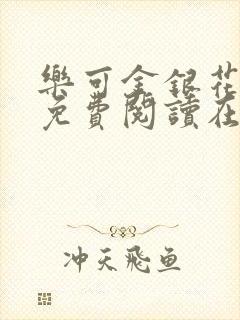 樂可金銀花
免費閱讀在
冲天飛鱼